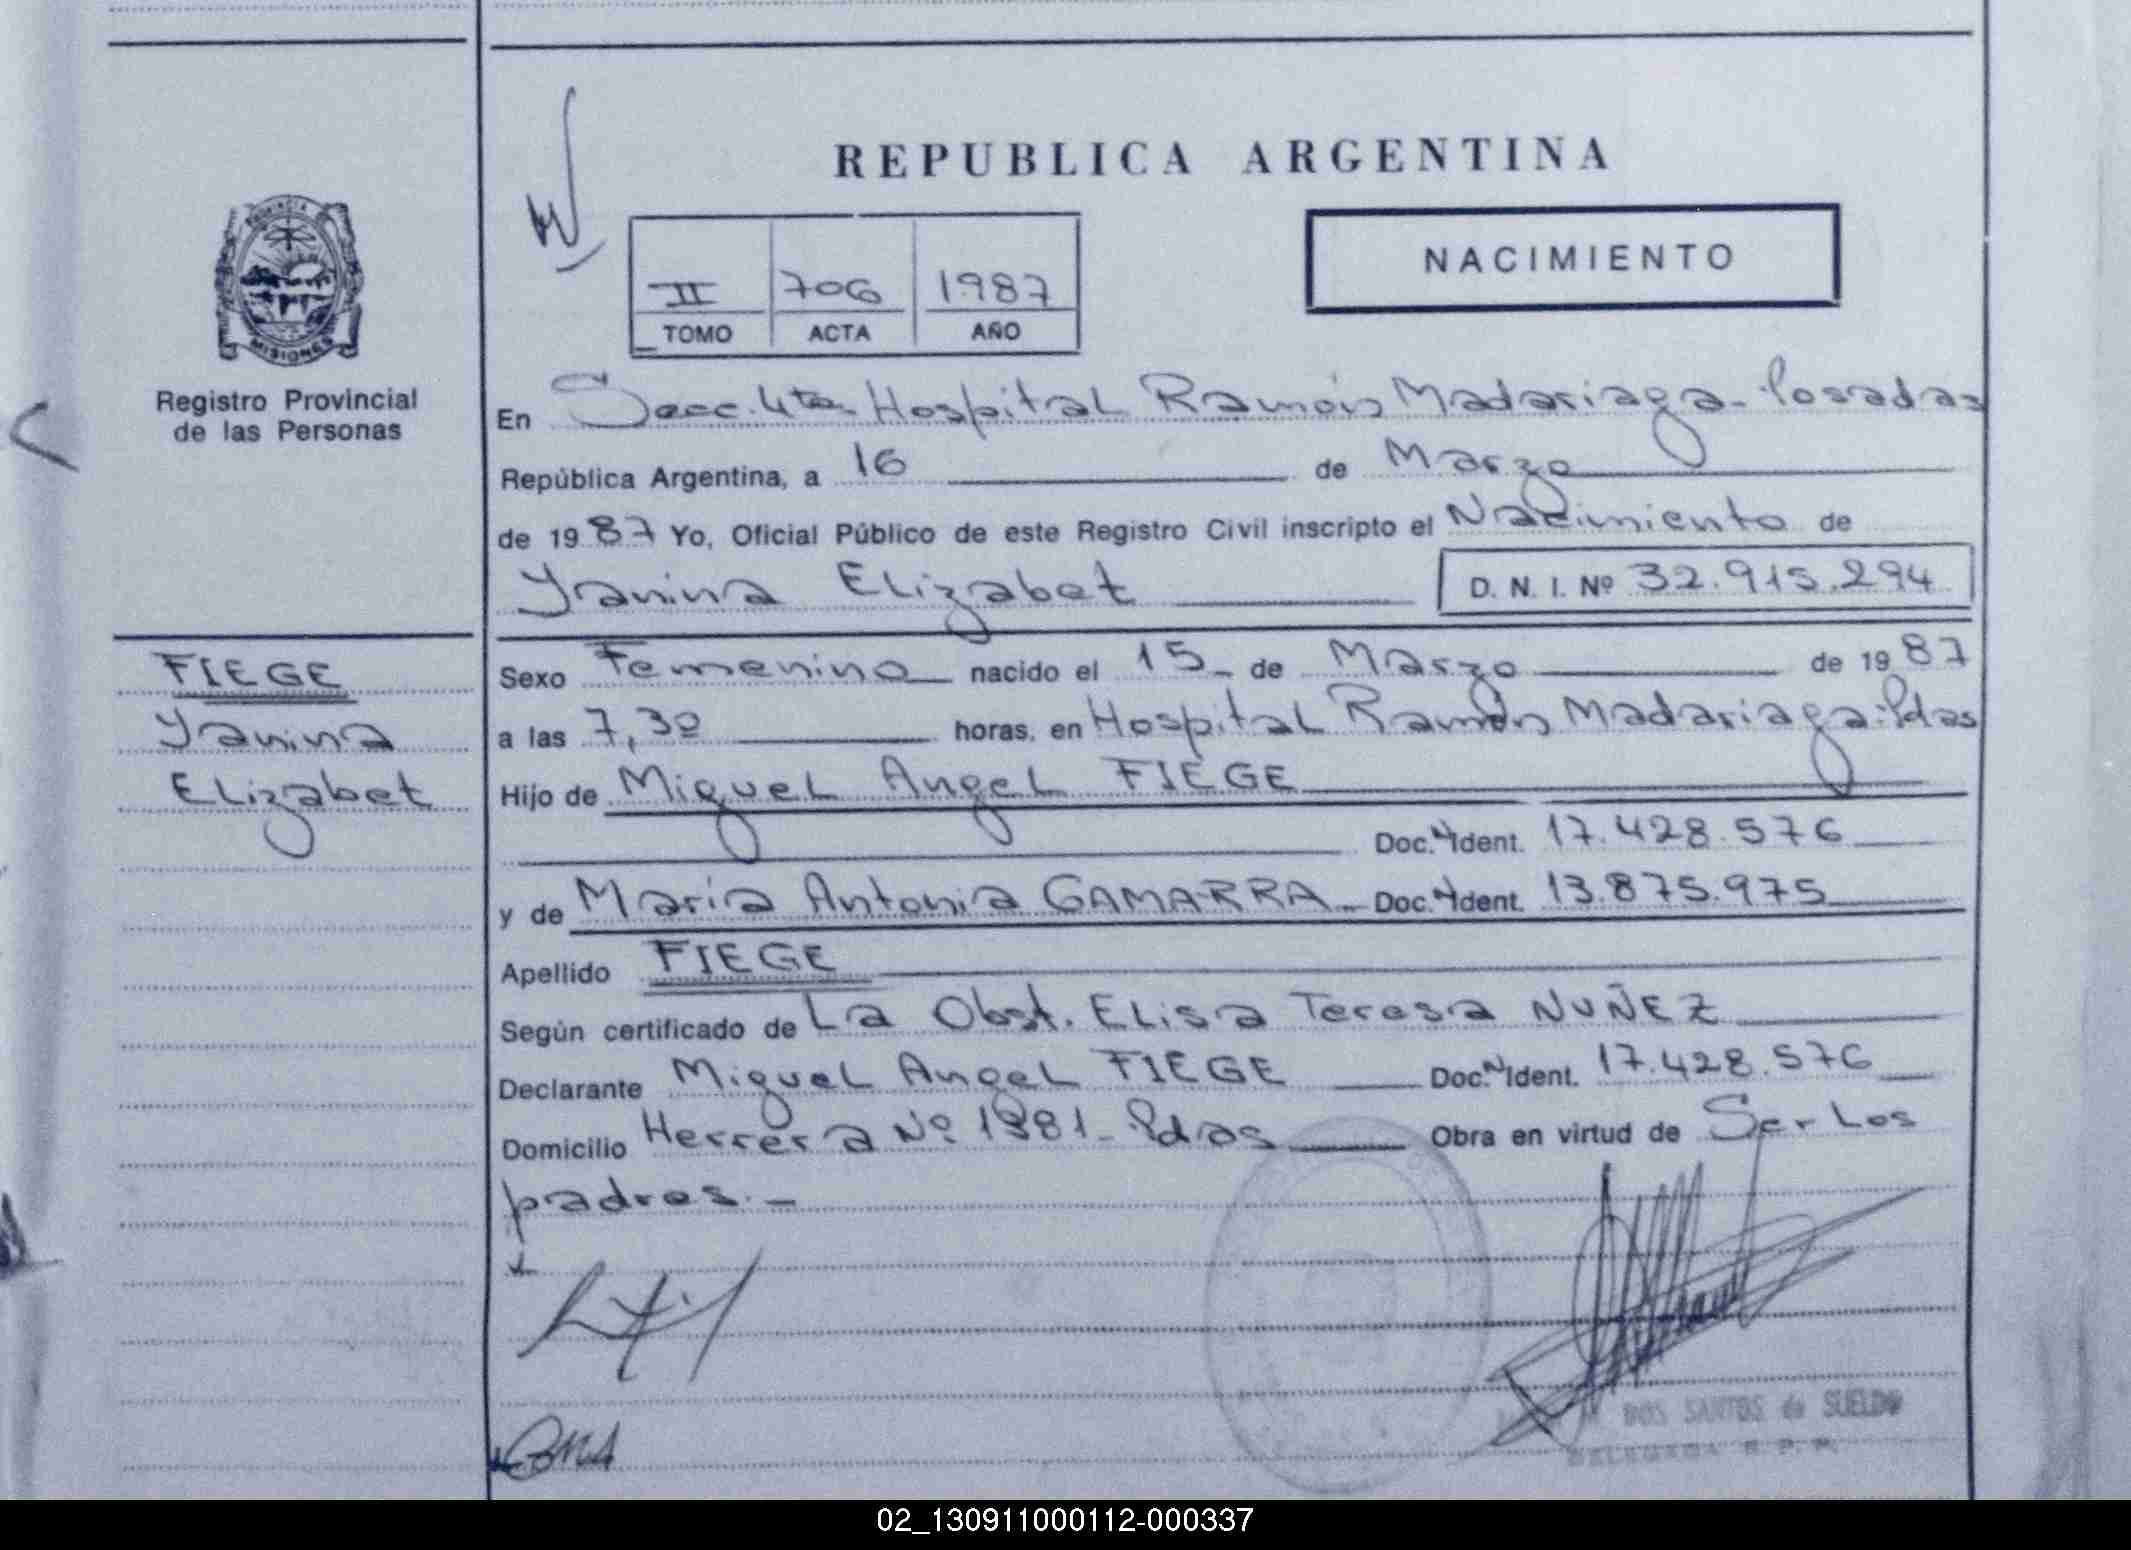 REPUBLICA ARGENTINA
PROVINCIA DE
MISIONES
Registro Provincial
de las Personas
NACIMIENTO
II 706 1987
TOMO ACTA AÑO
En Secc. 4ta. Hospital Ramón Madariaga - Posadas
República Argentina, a 16 de Marzo
de 1987 Yo, Oficial Público de este Registro Civil inscripto el Nacimiento de
Yanina Elizabet D. N. I. Nº 32.915.294
FIEGE
Yanina
Elizabet
Sexo Femenino nacido el 15 de Marzo de 1987
a las 7,30 horas, en Hospital Ramón Madariaga. Pdas
Hijo de Miguel Angel FIEGE
Doc. N Ident. 17.428.576
y de María Antonia GAMARRA - Doc. N Ident. 13.875.975
Apellido FIEGE
Según certificado de La Obst. Elisa Teresa NUÑEZ
Declarante Miguel Angel FIEGE Doc. N Ident. 17.428.576
Domicilio Herrera Nº 1981 - Pdas Obra en virtud de Ser Los
padres. -
DOS SANTOS de SUELDO
DELEGADA R. P. P.
02_130911000112-000337